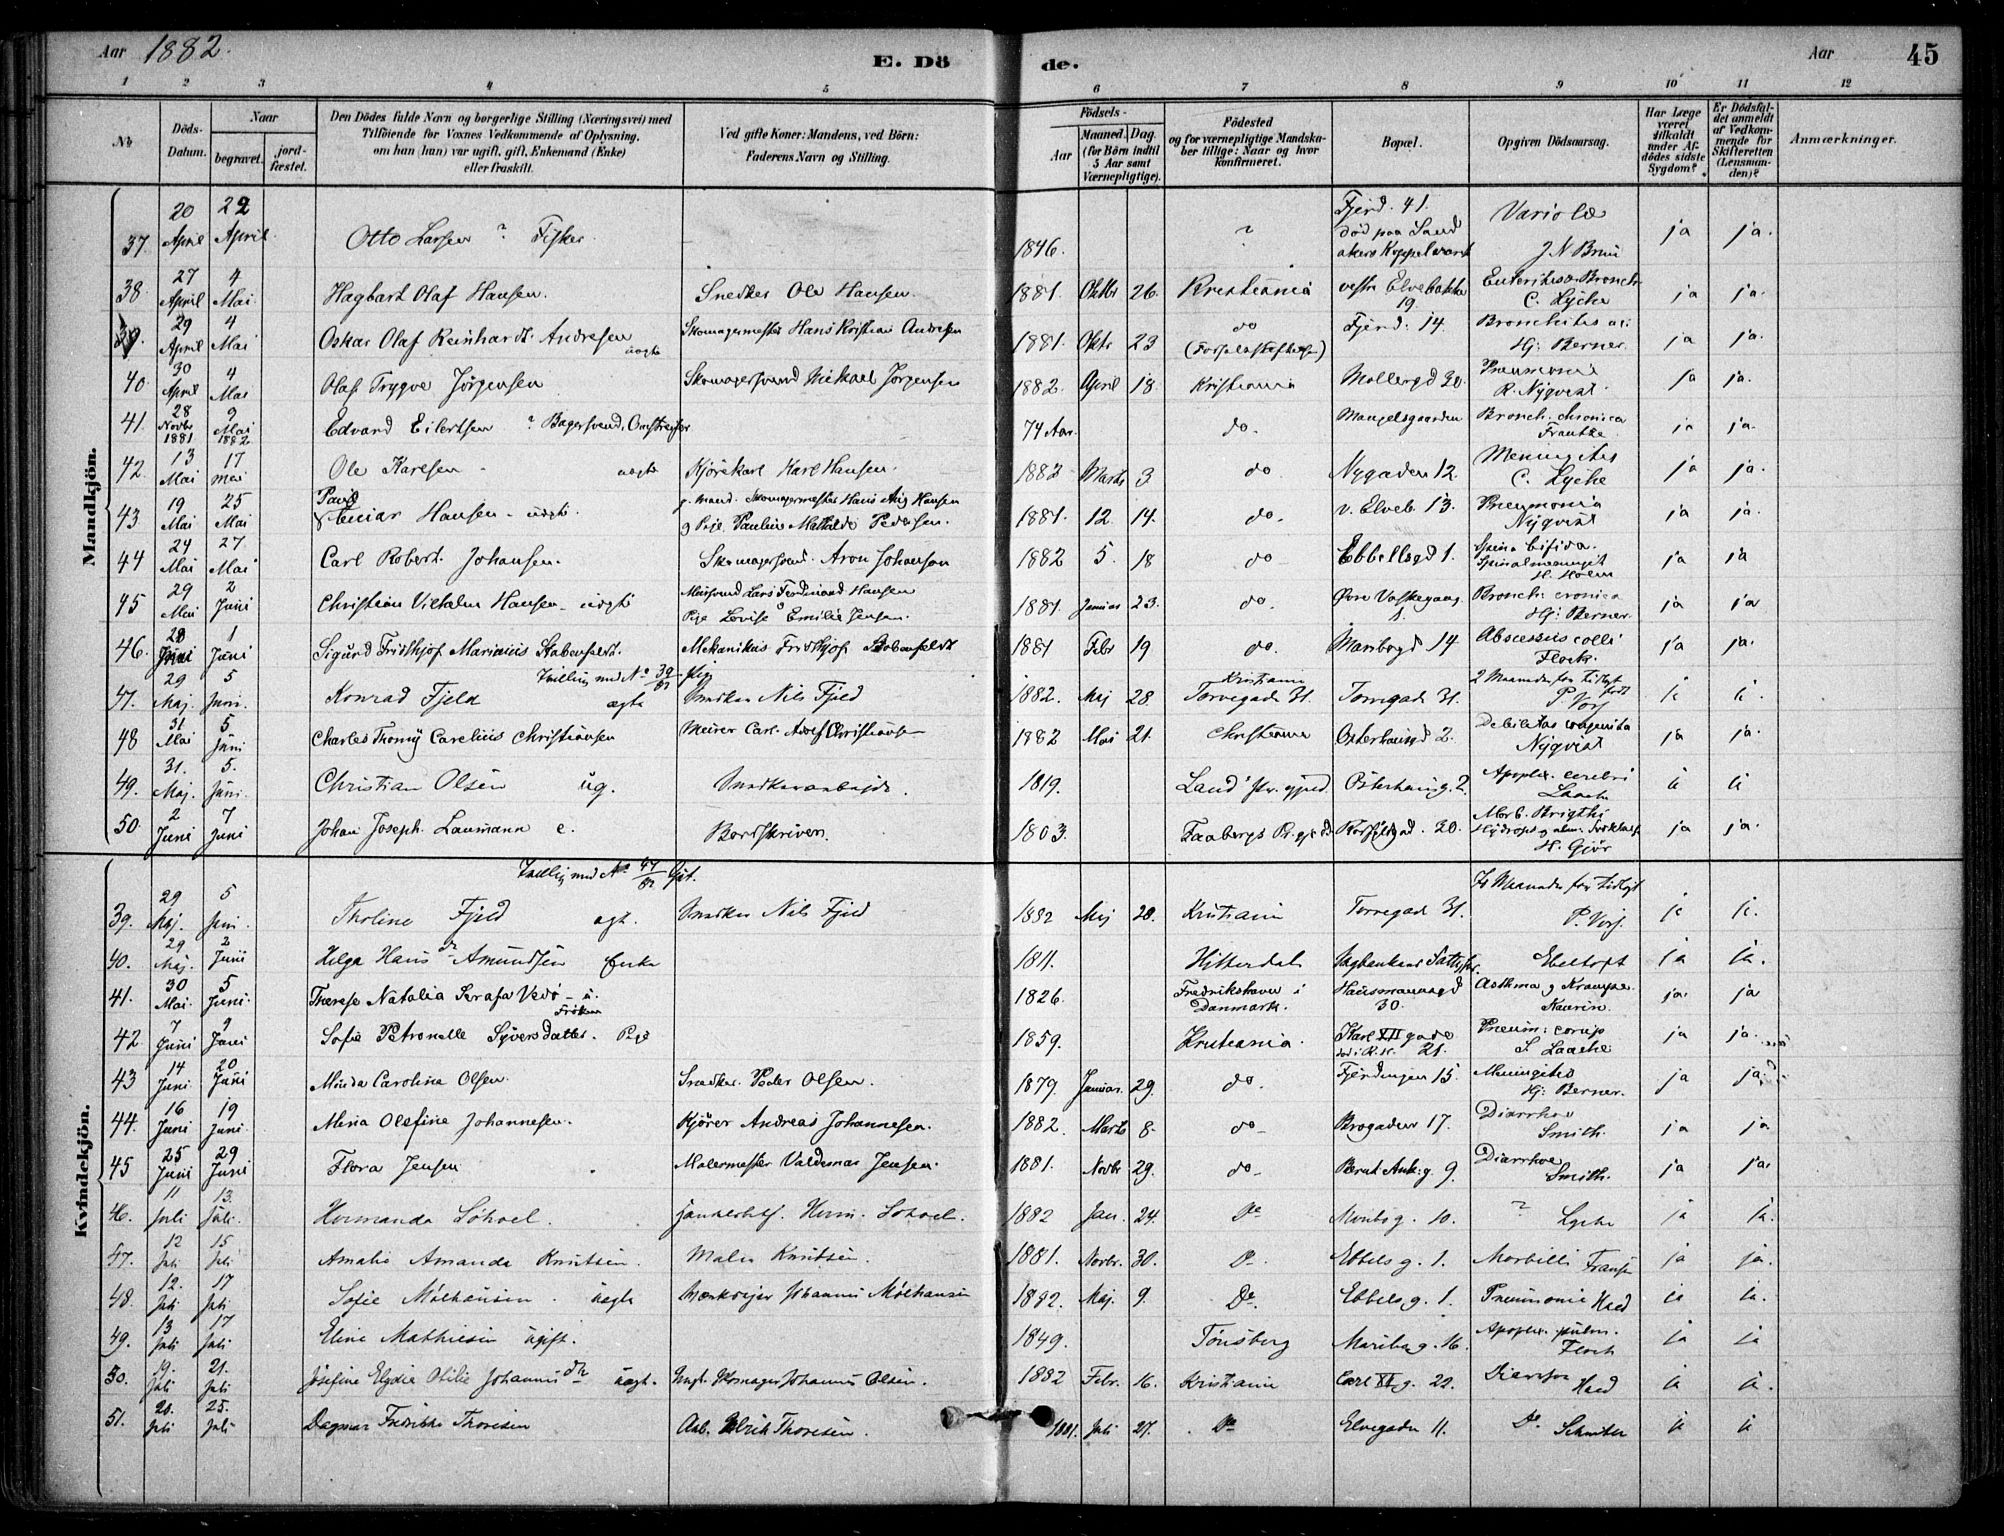 Aar 1882.
E. Döde.
Aar
45
1 2 3 4 5 6 7 8 9 10 11 12
No
Döds-Datum.
Naar
begravet.
jord-fæstet.
Den Dödes fulde Navn og borgerlige Stilling (Næringsvei) med
Tilföiende for Voxnes Vedkommende af Oplysning,
om han (hun) var ugift, gift, Enkemand (Enke)
eller fraskilt.
Ved gifte Koner: Mandens, ved Börn:
Faderens Navn og Stilling.
Födsels-
Aar
Maaned. Dag.
(for Börn indtil
5 Aar samt
Værnepligtige).
Födested
og for værnepligtige Mandska-
ber tillige: Naar og hvor
konfirmeret.
Bopæl.
Opgiven Dödsaarsag.
Har Læge
været
tilkaldt
under Af-
dödes sidste
Sygdom?
Er Dödsfal-
det anmeldt
af Vedkom-
mende for
Skifteretten
(Lensman-
den)?
Anmærkninger.
Mandkjön.
37. 20 April 22 April Otto Larsen ? Fisker. 1846. ? Fjerd. 41. död paa Sand Variolæ J N Bruu ja ja.
38. 27 April 4 Mai Hagbart Olaf Hansen. Snedker Ole Hansen. 1881. Oktbr 26. Kristiania vestre Elvebakke 19 C. Lyche ja ja.
39. 29 April 4 Mai Oskar Olaf Reinhardt Andresen uægte Skomagermester Hans Kristian Andresen 1881. Oktr 23 do Fjerd: 14. Bronchitis Hj: Berner. ja ja.
40 30 April 4 Mai Olaf Trygve Jörgensen Skomagersvend Mikael Jörgensen 1882. April 18. Kristiania Mollergd 30. Pneumonia R. Nyqvist ja ja.
41. 28 Novbr 1881 9 Mai 1882 Edvard Eilertsen ? Bagersvend, 74 Aar. do. Mangelsgaarden Bronch: chronica Frantze ja ja.
42. 13 Mai 17 mai Ole Karlsen - uægte Kjörekarl Karl Hansen. 1882 Marts 3 do Nygaden 12. Meningitis C. Lyche ja ja.
43 19 Mai 25 Mai Hansen - uægte. g. mand. Skomagermester Hans Aug Hansen
og Pige Pauline Mathilde Pedersen. 1881. 12 14. do. v. Elveb 13. Pneumonia Nyqvist ja ja.
44 24 Mai 27 Mai Carl Robert Johansen. Skomagersvend. Aron Johanson 1882 5. 18 do Ebbellsgd 1. Spina bifida. Spinalmeningit H. Holm ja ja
45 29 Mai 2 Juni Christian Vilhelm Hansen - uægte Lars Ferdinand Hansen
Pige Lovise Emilie Jensen. 1881. Januar 23. do. Övre Vaskegang 1. Bronch: cronica Hj: Berner. ja ja
46. 28 1 Juni Sigurd Fridthjof Marinius Stabenfeldt. Mekanikus Fridthjof Stabenfeldt 1881 Febr 19 do. Maribogd 14 Abscessus colli Flock. ja ja.
Tvilling med No 39/82
47. 29 Maj. 5 Juni. Konrad Fjeld ægte Snedker Nils Fjeld 1882. Maj 28. Kristiania Torvegad 31. Torvegad 31. 2 Maaneder for tidligt födt P. Vorj
48 31. Mai 5 Juni Charles Thomy Carelius Christiansen Murer Carl Adolf Christiansen 1882 Mai 21. Christiania Osterhausgd 2. Debilitas congenita Nyqvist ja ja.
49. 31. Maj. 5. Juni. Christian Olsen ug. Snedkerarbejde. 1819. Land Østerhausg. 2. Apoplex. cerebri Laache
50. 2 Juni 7 Juni Johan Joseph Laumann e. Bordskriver. 1803. Faabergs 20. Morb. Brigthi H. Gjör ja ja.
Kvindekjön.
Tvilling med No 47/82
39. 29 Maj. 5 Juni. Tholine Fjeld ægt. Snedker Nils Fjeld 1882 Maj 28. Kristiania Torvegad 31. Maaneder for tidligt P. Vorj.
40. 29 Maj. 2 Juni Helga Hans dr Amundsen Enke 1811. Hitterdal Ebeltoft ja ja.
41. 30 Mai 5 Juni Therese Natalia Serafa Vedö - u. Fröken 1826. Fredrikshavn i Danmark. Hausmannsgd 30. Asthma og Krampe Kaurin. ja. ja
42. 7 Juni 9 Juni Sofie Petronelle Syversdatter. Pige 1859. Kristiania. Karl XII gade 21. Pneum: S. Laache ja ja.
43 14 Juni 20 Juni Minda Caroline Olsen. Snedker. Peder Olsen. 1879. Januar. 29. do. Fjerdingen 15. Meningitis Hj: Berner. ja ja
44. 16 Juni 19 Juni Mina Olefine Johannesen. Kjörer Andreas Johannesen. 1882. Marts 8. do Brogaden 17. Diarrhoe Smith. ja ja
45 25 Juni 29 Juni Flora Jensen Malermester Valdemar Jensen. 1881. Novbr 29. do Bernt Ank: g. 9 Diarrhoe Smith. ja ja.
46. 11 Juli 13. Juli. Hermanda Söhoel. Herm. Söhoel. 1882 Jan. 24. Do Maribog. 10. ? Lyche ja ja.
47. 12 Juli 15 Juli Amalie Amanda Knutsen. Maler Knutsen. 1881. Novbr. 30. D. Ebbelsg. 1. Morbilli ja ja.
48. 12. Juli 17 Juli Sofie Mölhausen. uægte Johannes Mölhausen 1882. Maj. 9. Do. Ebbelsg. 1. Pneumonie
49. 13 Juli 17 Juli Eline Mathiesen ugift. 1849. Tönsberg Maribog. 16. Apoplex. pulm. Flock ja ja
50. 19. Juli 21. Juli Josefine Elydia Otilie Johannes dr uægt. Skomager Johannes Olsen. 1882 Febr. 16. Kristiania Carl XII g. 22. Diarrhoe
51. 20. Juli 25. Juli Dagmar Fredrikke Thoresen Arb. Ulrik Thoresen. 1881. Juli 27. Do Elvegaden 11. Do. Schreiber